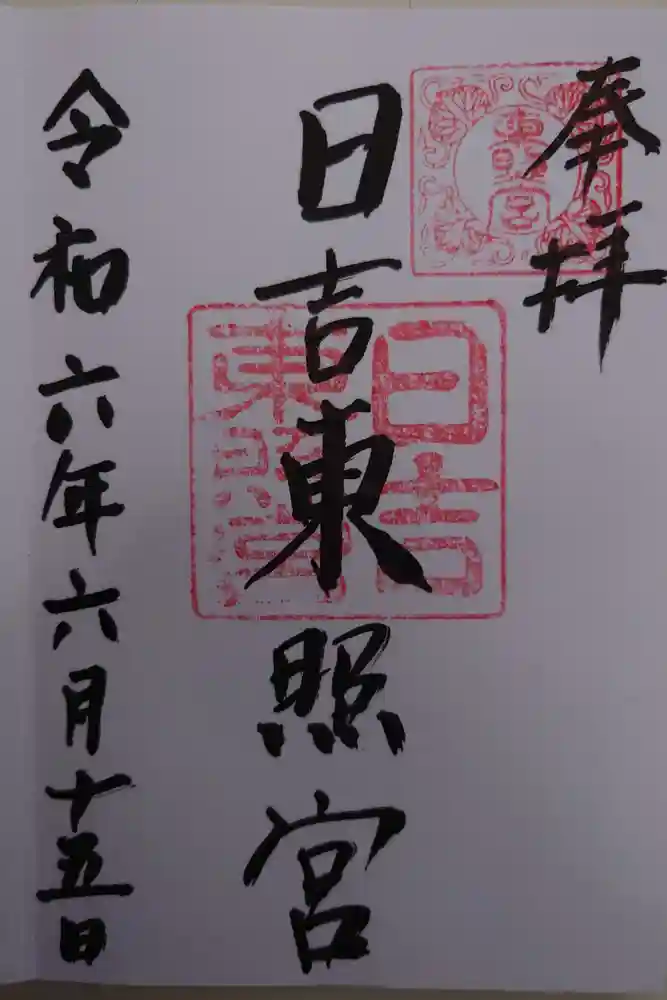 奉拝
東照宮
日吉東照宮
日吉
東照宮
令和六年六月十五日